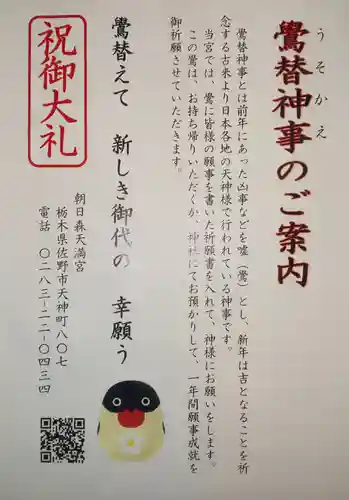 うそかえ
鷽替神事のご案内
鷽替神事とは前年にあった凶事などを嘘(鷽)とし、新年は吉となることを祈
念する古来より日本各地の天神様で行われている神事です。
当宮では、鷽に皆様の願事を書いた祈願書を入れて、神様にお願いをします。
この鷽は、お持ち帰りいただくか、神社にてお預かりして、一年間願事成就を
御祈願させていただきます。
鷽替えて 新しき御代の 幸願う
祝御大礼
朝日森天満宮
栃木県佐野市天神町八〇七
電話 〇二八三-二二-〇四三四